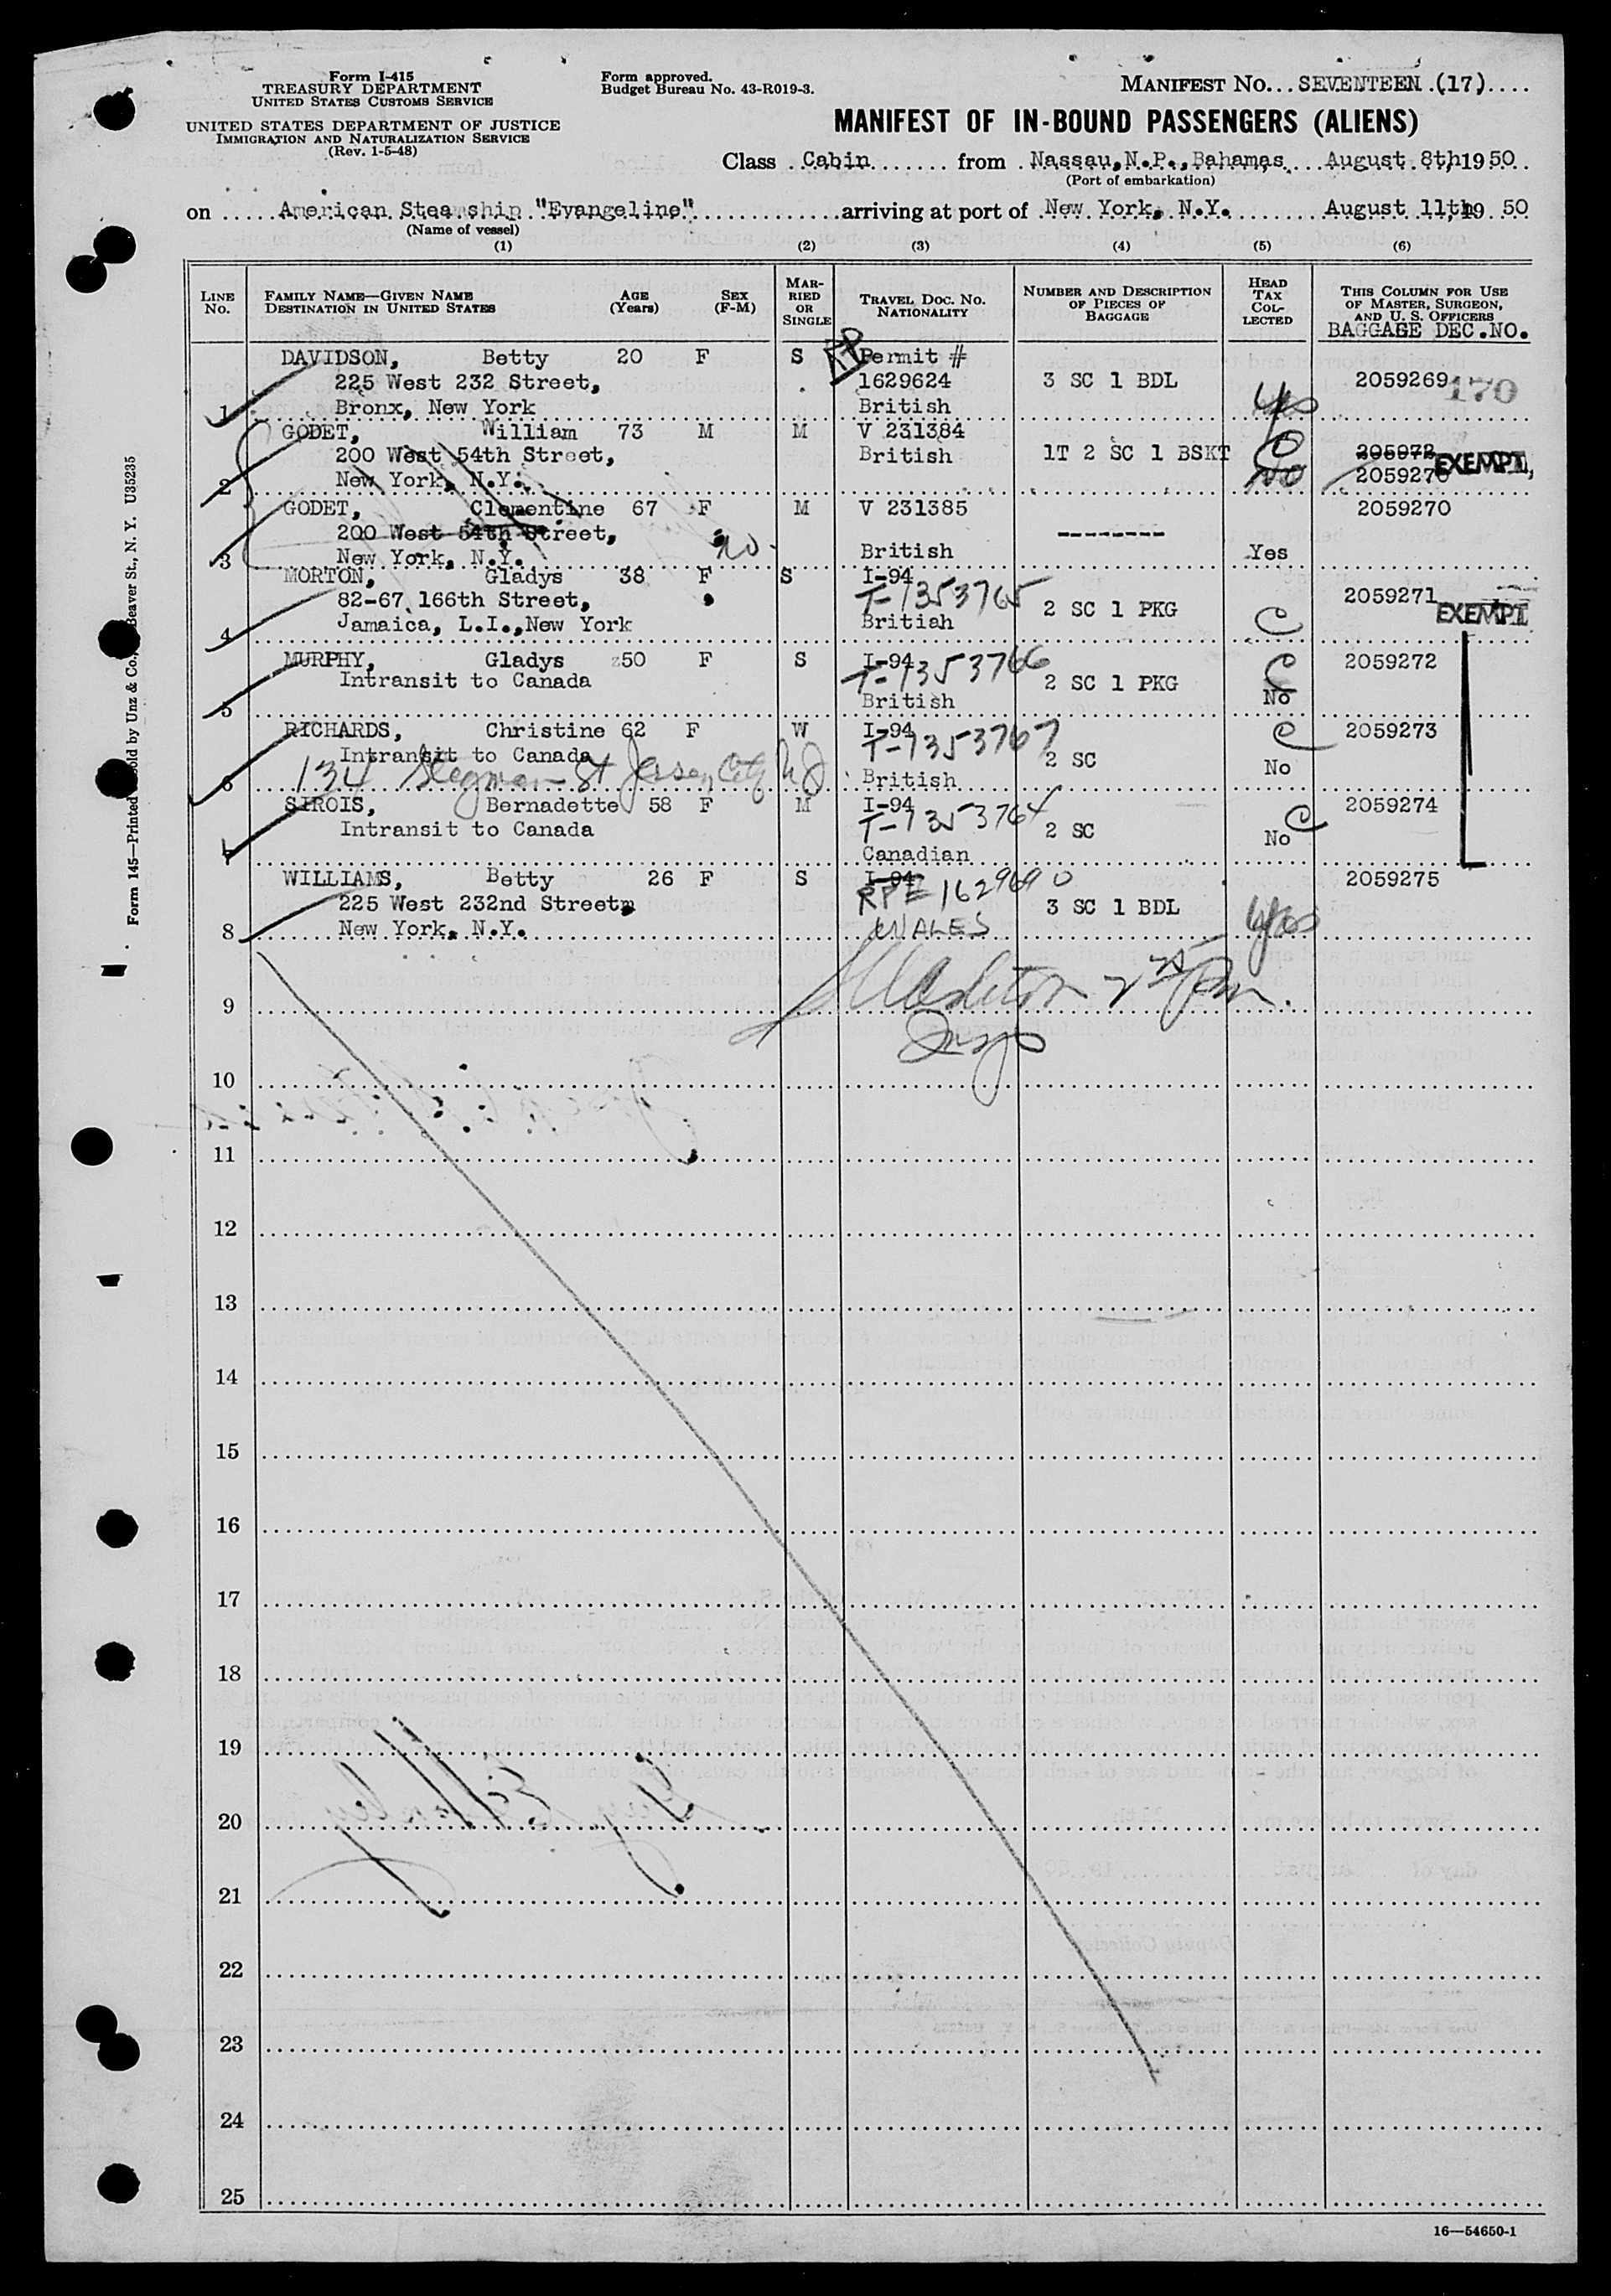 Form I-415
TREASURY DEPARTMENT
UNITED STATES CUSTOMS SERVICE
UNITED STATES DEPARTMENT OF JUSTICE
IMMIGRATION AND NATURALIZATION SERVICE
(Rev. 1-5-48)
Form approved.
Budget Bureau No. 43-R019-3.
MANIFEST NO... SEVENTEEN .(17)....
MANIFEST OF IN-BOUND PASSENGERS (ALIENS)
Class ..Cabin........ from ..Nassau,N.P.,Bahamas.... August 8th, 1950..
(Port of embarkation)
on ......American Steamship "Evangeline"...............arriving at port of ..New York, N.Y........... August 11th, 19 50
(Name of vessel)
(1) (2) (3) (4) (5) (6)
LINE NO. FAMILY NAME—GIVEN NAME DESTINATION IN UNITED STATES AGE (Years) SEX (F-M) MARRIED OR SINGLE TRAVEL DOC. NO. NATIONALITY NUMBER AND DESCRIPTION OF PIECES OF BAGGAGE HEAD TAX COLLECTED THIS COLUMN FOR USE OF MASTER, SURGEON, AND U. S. OFFICERS
BAGGAGE DEC.NO.
DAVIDSON, Betty 20 F S RP Permit #
225 West 232 Street, 1629624 3 SC 1 BDL 2059269 170
1 Bronx, New York British Yes
GODET, William 73 M M V 231384
200 West 54th Street, British 1T 2 SC 1 BSKT C 205972 EXEMPT,
2 New York, N.Y. No 2059270
GODET, Clementine 67 F M V 231385 2059270
200 West 54th Street, no. --------
3 New York, N.Y. British Yes
MORTON, Gladys 38 F S I-94
82-67 166th Street, T-1353765 2 SC 1 PKG 2059271 EXEMPT
4 Jamaica, L.I.,New York British C
MURPHY, Gladys 50 F S I-94 C 2059272
Intransit to Canada T-1353766 2 SC 1 PKG
5 British No
RICHARDS, Christine 62 F W I-94 C 2059273
Intransit to Canada T-1353767 2 SC
6 134 Stegman St Jersey City NJ British No
SIROIS, Bernadette 58 F M I-94 C 2059274
Intransit to Canada T-1353764 2 SC No
7 Canadian
WILLIAMS, Betty 26 F S I-94 2059275
225 West 232nd Street, RPE 1629690 3 SC 1 BDL
8 New York, N.Y. WALES Yes
9
Insp
10
11
12
13
14
15
16
17
18
19
20
21
22
23
24
25
16—54650-1
Form 145—Printed
Sold by Unz & Co.,
Beaver St., N. Y. U35235